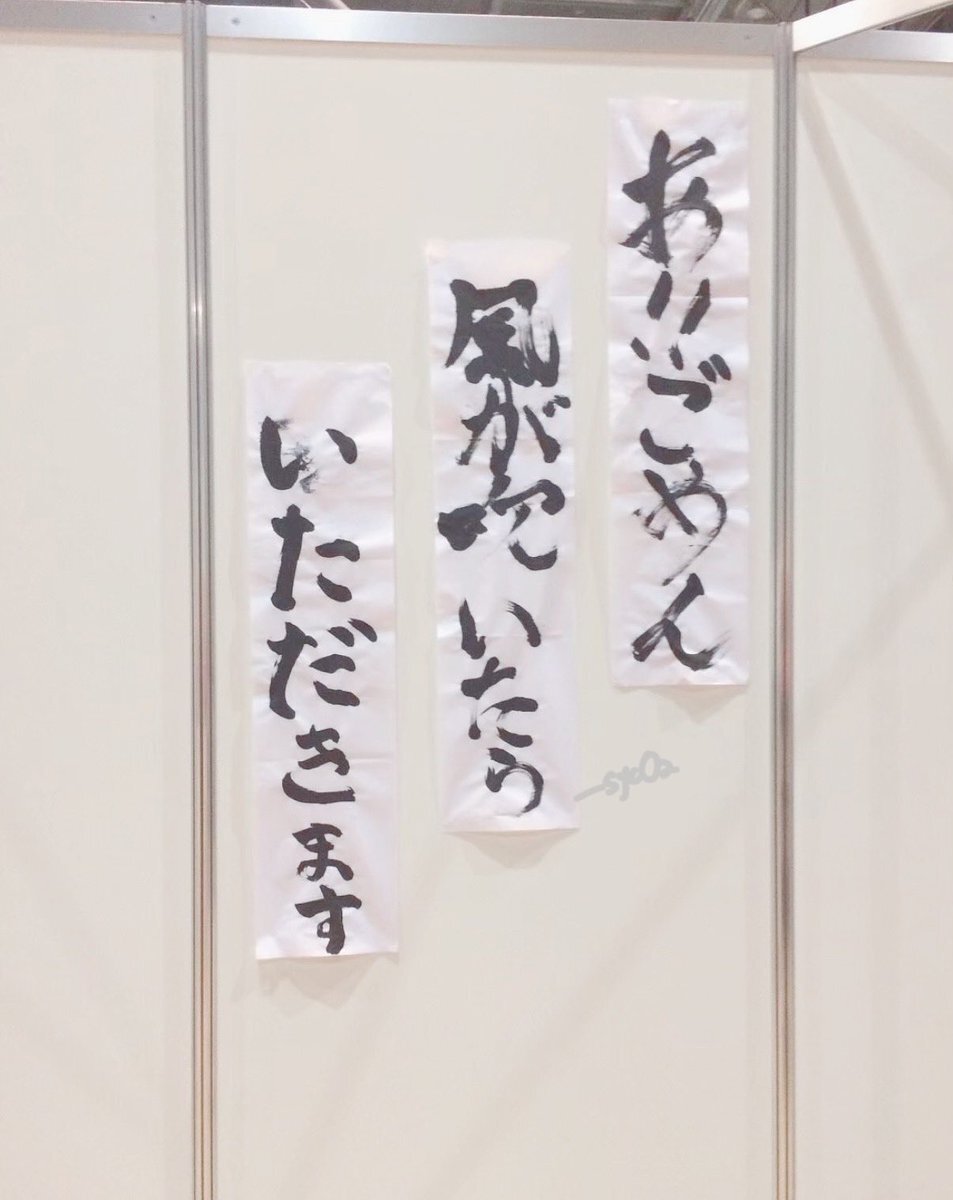 ありごめん
風が吹いたら
いただきます